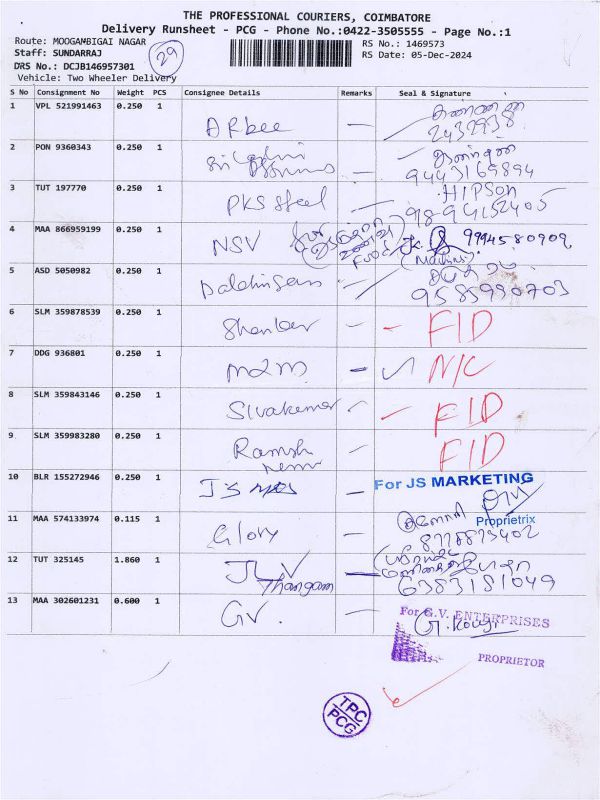 THE PROFESSIONAL COURIERS, COIMBATORE
Delivery Runsheet - PCG - Phone No.:0422-3505555 - Page No.:1
Route: MOOGAMBIGAI NAGAR
RS No.: 1469573
Staff: SUNDARRAJ
29
RS Date: 05-Dec-2024
DRS No.: DCJB146957301
Vehicle: Two Wheeler Delivery
S No Consignment No Weight PCS Consignee Details Remarks Seal & Signature
1 VPL 521991463 0.250 1 ARbee
2432938
2 PON 9360343 0.250 1 Sri
9443169894
3 TUT 197770 0.250 1 PKS Steel HIPSON
9894152405
4 MAA 866959199 0.250 1 NSV 9994580909
5 ASD 5050982 0.250 1
9585990703
6 SLM 359878539 0.250 1 Shanker FID
7 DDG 936801 0.250 1 M2M N/C
8 SLM 359843146 0.250 1 Sivakumar FID
9 SLM 359983280 0.250 1 Ramesh FID
10 BLR 155272946 0.250 1 JS For JS MARKETING
Proprietrix
11 MAA 574133974 0.115 1 Glory
8778873402
12 TUT 325145 1.860 1 JLV
Thangam 6383151049
13 MAA 302601231 0.600 1 GV. For G.V. ENTERPRISES
PROPRIETOR
TPC
PCG